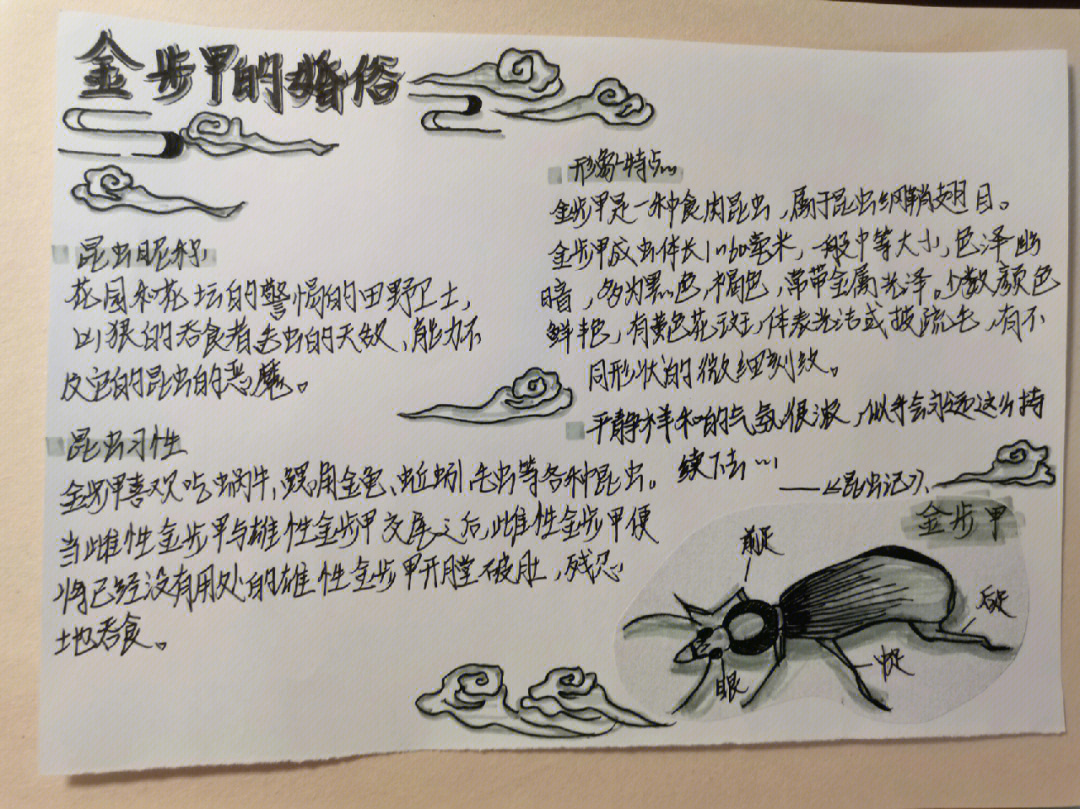 金步甲的婚俗
昆虫昵称
花园和花坛的警惕的田野卫士,
凶狠的吞食者毛虫的天敌、能力不
及它的昆虫的恶魔。
昆虫习性
金步甲喜欢吃蜗牛、鳃角金龟、蚯蚓、毛虫等各种昆虫。
当雌性金步甲与雄性金步甲交尾之后,雌性金步甲便
将已经没有用处的雄性金步甲开膛破肚,残忍
地吞食。
形象特点
金步甲是一种食肉昆虫,属于昆虫纲鞘翅目。
金步甲成虫体长1~60毫米,一般中等大小,色泽幽
暗,多为黑色、褐色,常带金属光泽。少数颜色
鲜艳,有黄色花斑,体表光洁或披疏毛,有不
同形状的微细刻纹。
平静祥和的气氛很浓,似乎会永远这么持
续下去…
——《昆虫记》
金步甲
前足
后足
中足
眼